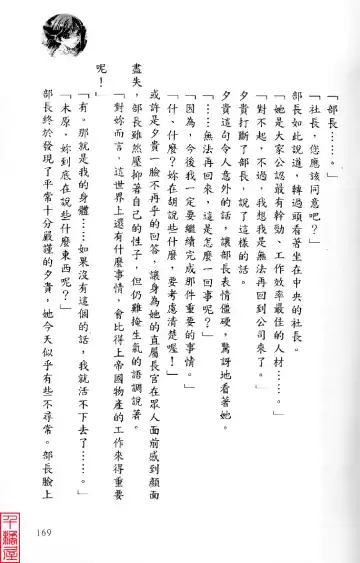 「部長……。」
「社長，您應該同意吧？」
部長如此說道，轉過頭看著坐在中央的社長。
「她是大家公認最有幹勁、工作效率最佳的人材……。」
「對不起，不過，我想我是無法再回到公司來了。」
夕貴打斷了部長，說了這樣的話。
夕貴這句令人意外的話，讓部長表情僵硬，驚訝地看著她。
「……無法再回來，這是怎麼一回事呢？」
「因為，今後我一定要繼續完成那件重要的事情。」
「什、什麼？妳在胡說些什麼，要考慮清楚喔！」
或許是夕貴一臉不再乎的回答，讓身為她的直屬長官在眾人面前感到顏面
盡失，部長雖然壓抑著自己的性子，但仍難掩生氣的語調說著。
「對妳而言，這世界上還有什麼事情，會比得上帝國物產的工作來得重要
呢！」
「有。那就是我的身體……如果沒有這個的話，我就活不下去了……。」
「木原，妳到底在說些什麼東西呢？」
部長終於發現了平常十分嚴謹的夕貴，她今天似乎有些不尋常。部長臉上
169
千鶴屋